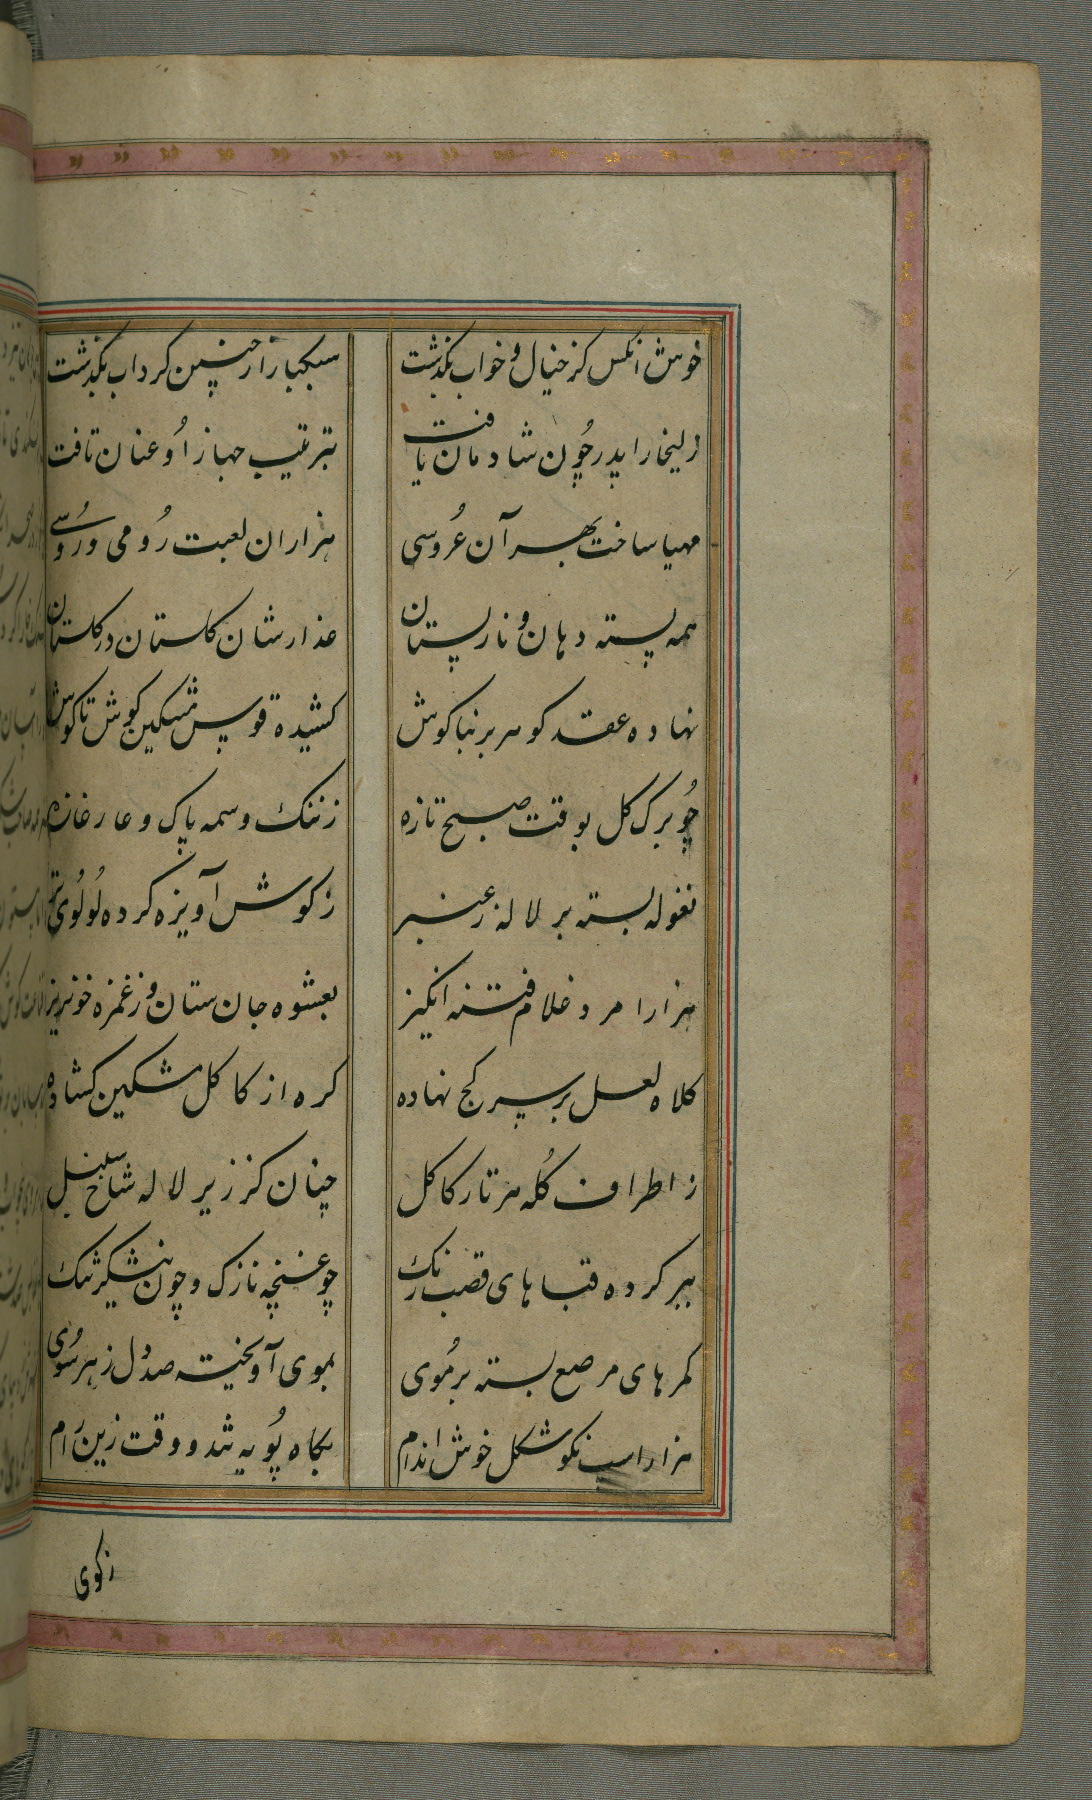 خوش آنکس کز خیال و خواب بگذشت سبکبار از چنین گرداب بگذشت
زلیخا را پدر چون شادمان یافت بترتیب جهاز او عنان تافت
مهیا ساخت بهر آن عروسی هزاران لعبت رومی و روسی
همه پسته دهان و نار پستان عذارشان گلستان در گلستان
نهاده عقد گوهر بر بناگوش کشیده قوس مشکین گوش تا گوش
چو برگ گل بوقت صبح تازه ز ننگ وسمه پاک و عار غازه
نغوله بسته بر لاله ز عنبر ز گوش آویزه کرده لولوی
هزار امرد غلام فتنه انگیز بعشوه جان ستان وز غمزه خونریز
کلاه لعل بر سر کج نهاده گره از کاکل مشکین گشاده
ز اطراف کله هر تار کاکل چنان کز زیر لاله شاخ سنبل
ببر کرده قباهای قصب رنگ چو غنچه نازک و چون نیشکر تنگ
کمرهای مرصع بسته بر موی بموی آویخته صد دل ز هر سوی
هزار اسب نکو شکل خوش اندام بگاه پویه تند و وقت زین رام
ز گوی